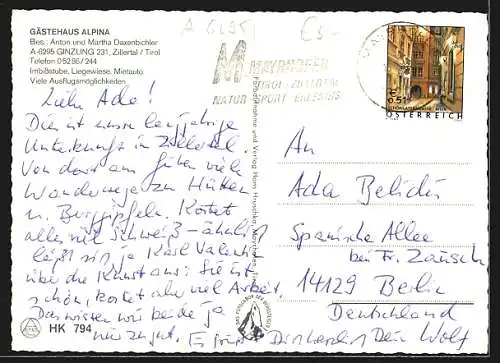 GÄSTEHAUS ALPINA
Bes.: Anton und Martha Daxenbichler
A-6295 GINZLING 231, Zillertal / Tirol
Telefon 0 52 86 / 244
Imbißstube, Liegewiese, Mietauto
Viele Ausflugsmöglichkeiten
A 6295
€3-
MAYRHOFEN
TIROL - ZILLERTAL
NATUR SPORT ERLEBNIS
€ 0,51
ÖSTERREICH
Liebe Ada!
Dies ist unsere langjährige
Unterkunft im Zillertal.
Von dort aus führen viele
Wanderwege zu Hütten
u. Berggipfeln. Kostet
alles viel Schweiß - ähnlich
läßt sich ja Karl Valentin
über die Kunst aus: Sie ist
schön, kostet aber viel Arbeit.
Das wissen wir beide ja
nur zu gut. Es grüßt Dich herzlich Dein Wolf
An
Ada
Spanische Allee
bei Fr. Zausch
14129 Berlin
Deutschland
HK 794